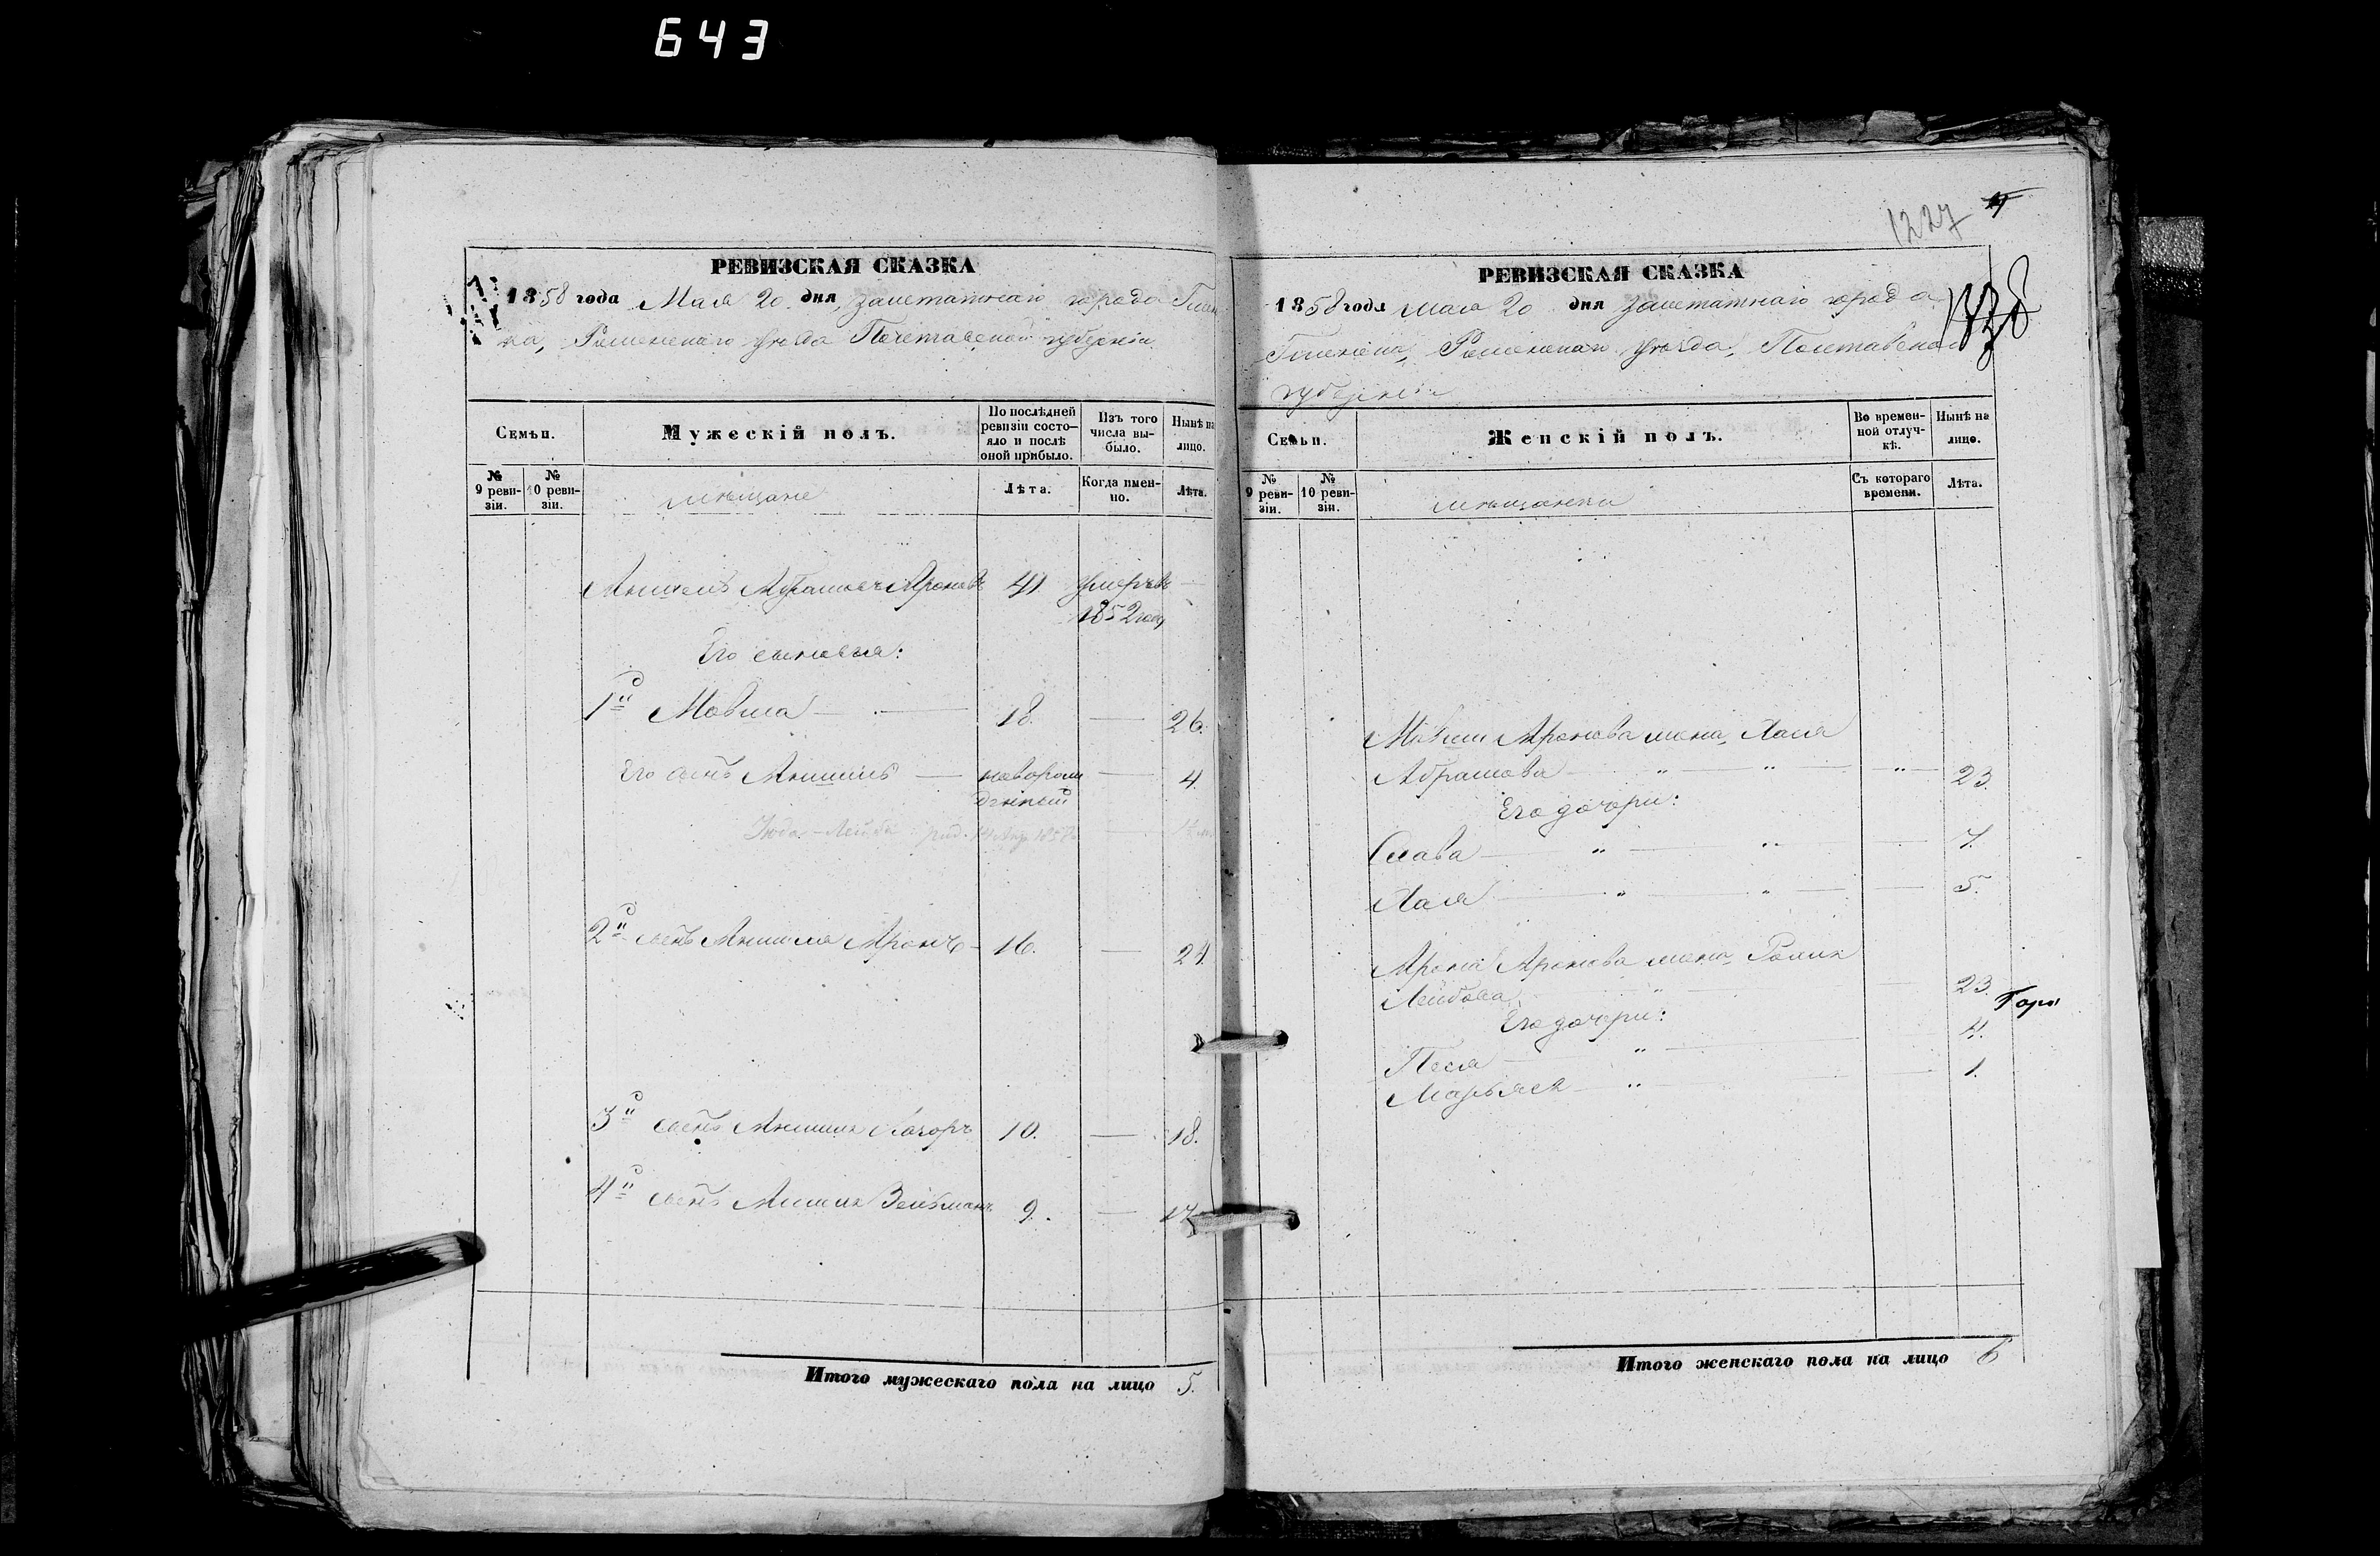 643
РЕВИЗСКАЯ СКАЗКА
1858 года Мая 20 дня, заштатнаго города Глин
ка, Роменскаго уѣзда Полтавской губерніи
Семьи.
Мужескій полъ.
По послѣдней ревизіи состо-
яло и послѣ
оной прибыло.
Изъ того
числа вы-
было.
Нынѣ на
лицо.
№
9 реви-
зіи.
№
10 реви-
зіи.
мѣщане
Лѣта.
Когда имен-
но.
Лѣта.
Аншель Абрамовъ Ароновъ 41 умеръ въ —
1852 году
Его сыновья:
1й Мовша — 18. — 26.
Его сынъ Аншель — новорож — 4.
денный
Іюда-Лейба род. 14 Апр. 1858 —
2й сынъ Аншеля Аронъ - 16. — 24.
3й сынъ Аншеля Лазоръ 10. — 18.
4й сынъ Аншеля Зельманъ 9. — 17.
Итого мужескаго пола на лицо 5.
1227
РЕВИЗСКАЯ СКАЗКА
1858 года мая 20 дня заштатнаго города
Глинска, Роменскаго уѣзда, Полтавской
губерніи
Семьи.
Женскій полъ.
Во времен-
ной отлуч-
кѣ.
Нынѣ на
лицо.
№
9 реви-
зіи.
№
10 реви-
зіи.
мѣщанки
Съ котораго
времени.
Лѣта.
Мовши Аронова жена, Хая
Абрамова — " — " — " — 23.
Его дочери:
Слава — " — " — 7.
Хая — " — " — 5.
Арона Аронова жена
Лейбова — " — 23.
Его дочери:
Песя — " — 4.
Марьяся — " — 1.
Итого женскаго пола на лицо 6